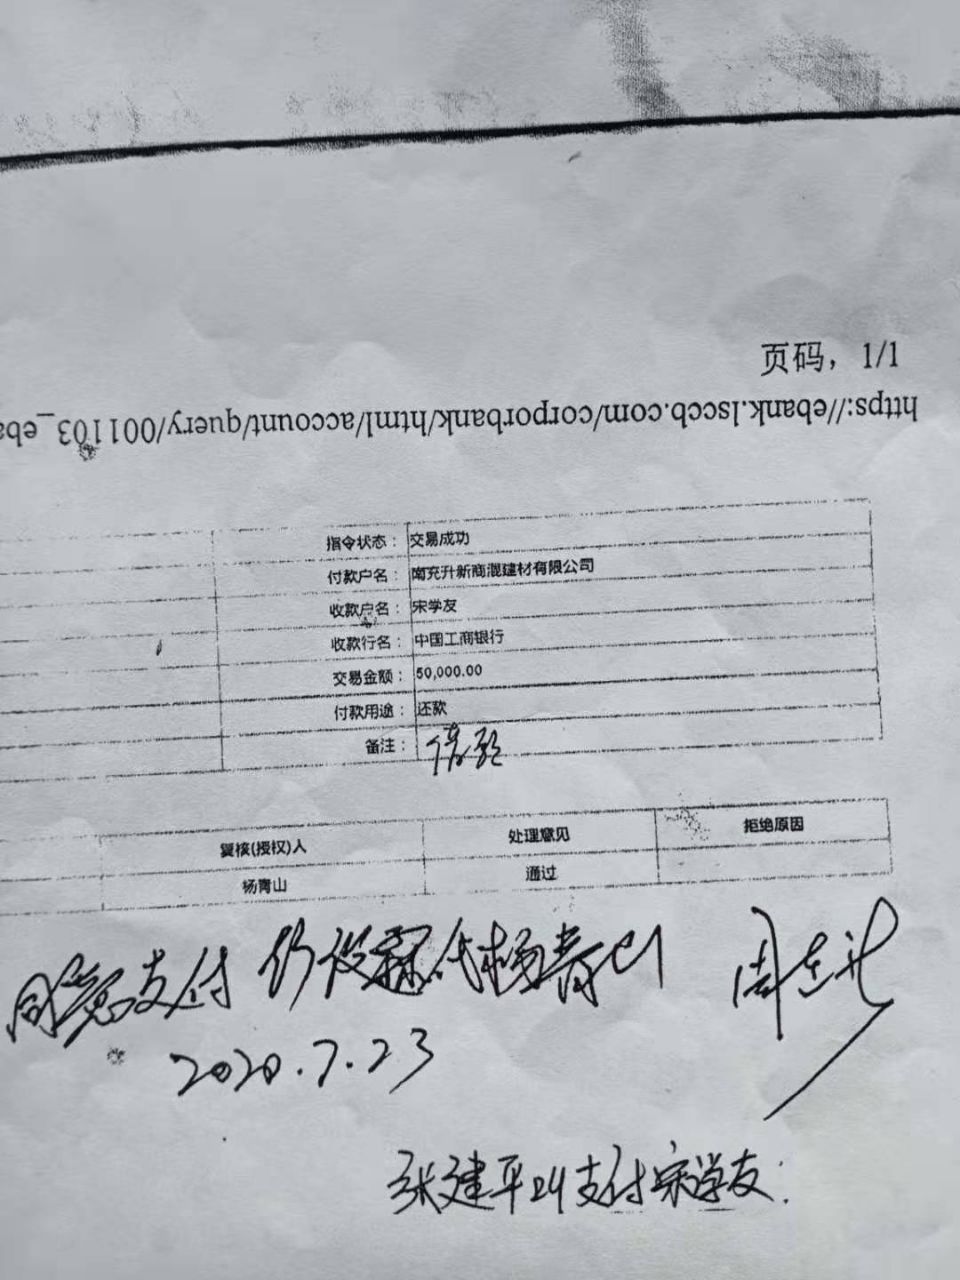 页码，1/1
https://ebank.lsccb.com.cn/corporbank/html/account/query/001103_eba
指令状态：交易成功
付款户名：南充升新商混建材有限公司
收款户名：宋学友
收款行名：中国工商银行
交易金额：50,000.00
付款用途：还款
备注：借款
复核(授权)人 处理意见 拒绝原因
杨青山 通过
同意支付 代杨青山 周
2020.7.23
张建平叫支付宋学友：